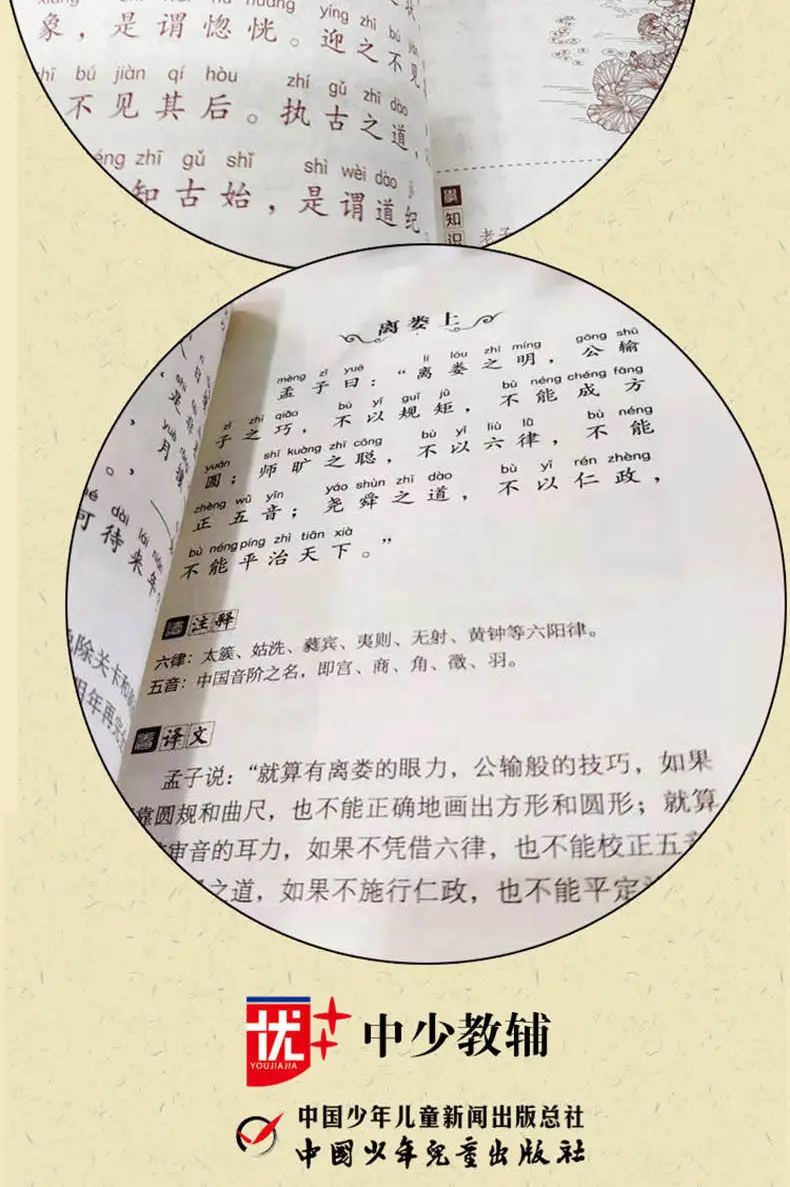 yíng zhī bú
象，是谓惚恍。迎之不见
bú jiàn qí hòu zhí gǔ zhī dào
不见其后。执古之道，
zhī gǔ shǐ shì wèi dào
知古始，是谓道纪
知识
老子
来年
可待来年
除关卡和
明年再完全
离娄上
mèng zǐ yuē lí lóu zhī míng gōng shū
孟子曰：“离娄之明，公输
zǐ zhī qiǎo bù yǐ guī jǔ bù néng chéng fāng
子之巧，不以规矩，不能成方
yuán shī kuàng zhī cōng bù yǐ liù lǜ bù néng
圆；师旷之聪，不以六律，不能
zhèng wǔ yīn yáo shùn zhī dào bù yǐ rén zhèng
正五音；尧舜之道，不以仁政，
bù néng píng zhì tiān xià
不能平治天下。”
注释
六律：太簇、姑洗、蕤宾、夷则、无射、黄钟等六阳律。
五音：中国音阶之名，即宫、商、角、徵、羽。
译文
孟子说：“就算有离娄的眼力，公输般的技巧，如果
靠圆规和曲尺，也不能正确地画出方形和圆形；就算
审音的耳力，如果不凭借六律，也不能校正五音
之道，如果不施行仁政，也不能平定
优
YOUJIAJIA
中少教辅
中国少年儿童新闻出版总社
中國少年兒童出版社